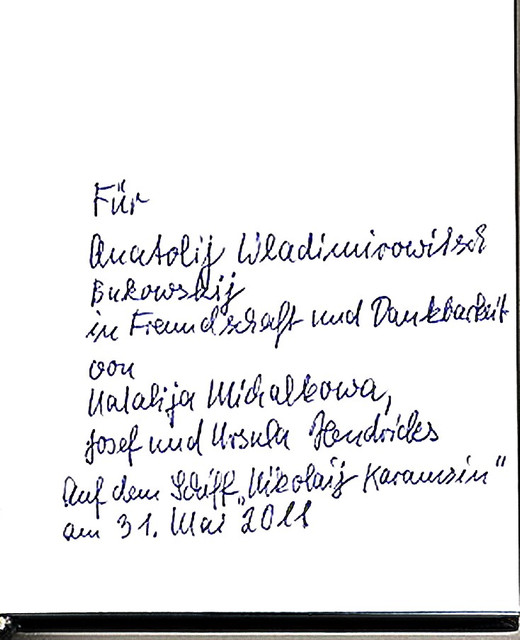 Für
Anatolij Wladimirowitsch
Bukowskij
in Freundschaft und Dankbarkeit
von
Natalija Michalkowa,
Josef und Ursula Hendricks
Auf dem Schiff „Nikolaij Karamsin“
am 31. Mai 2011